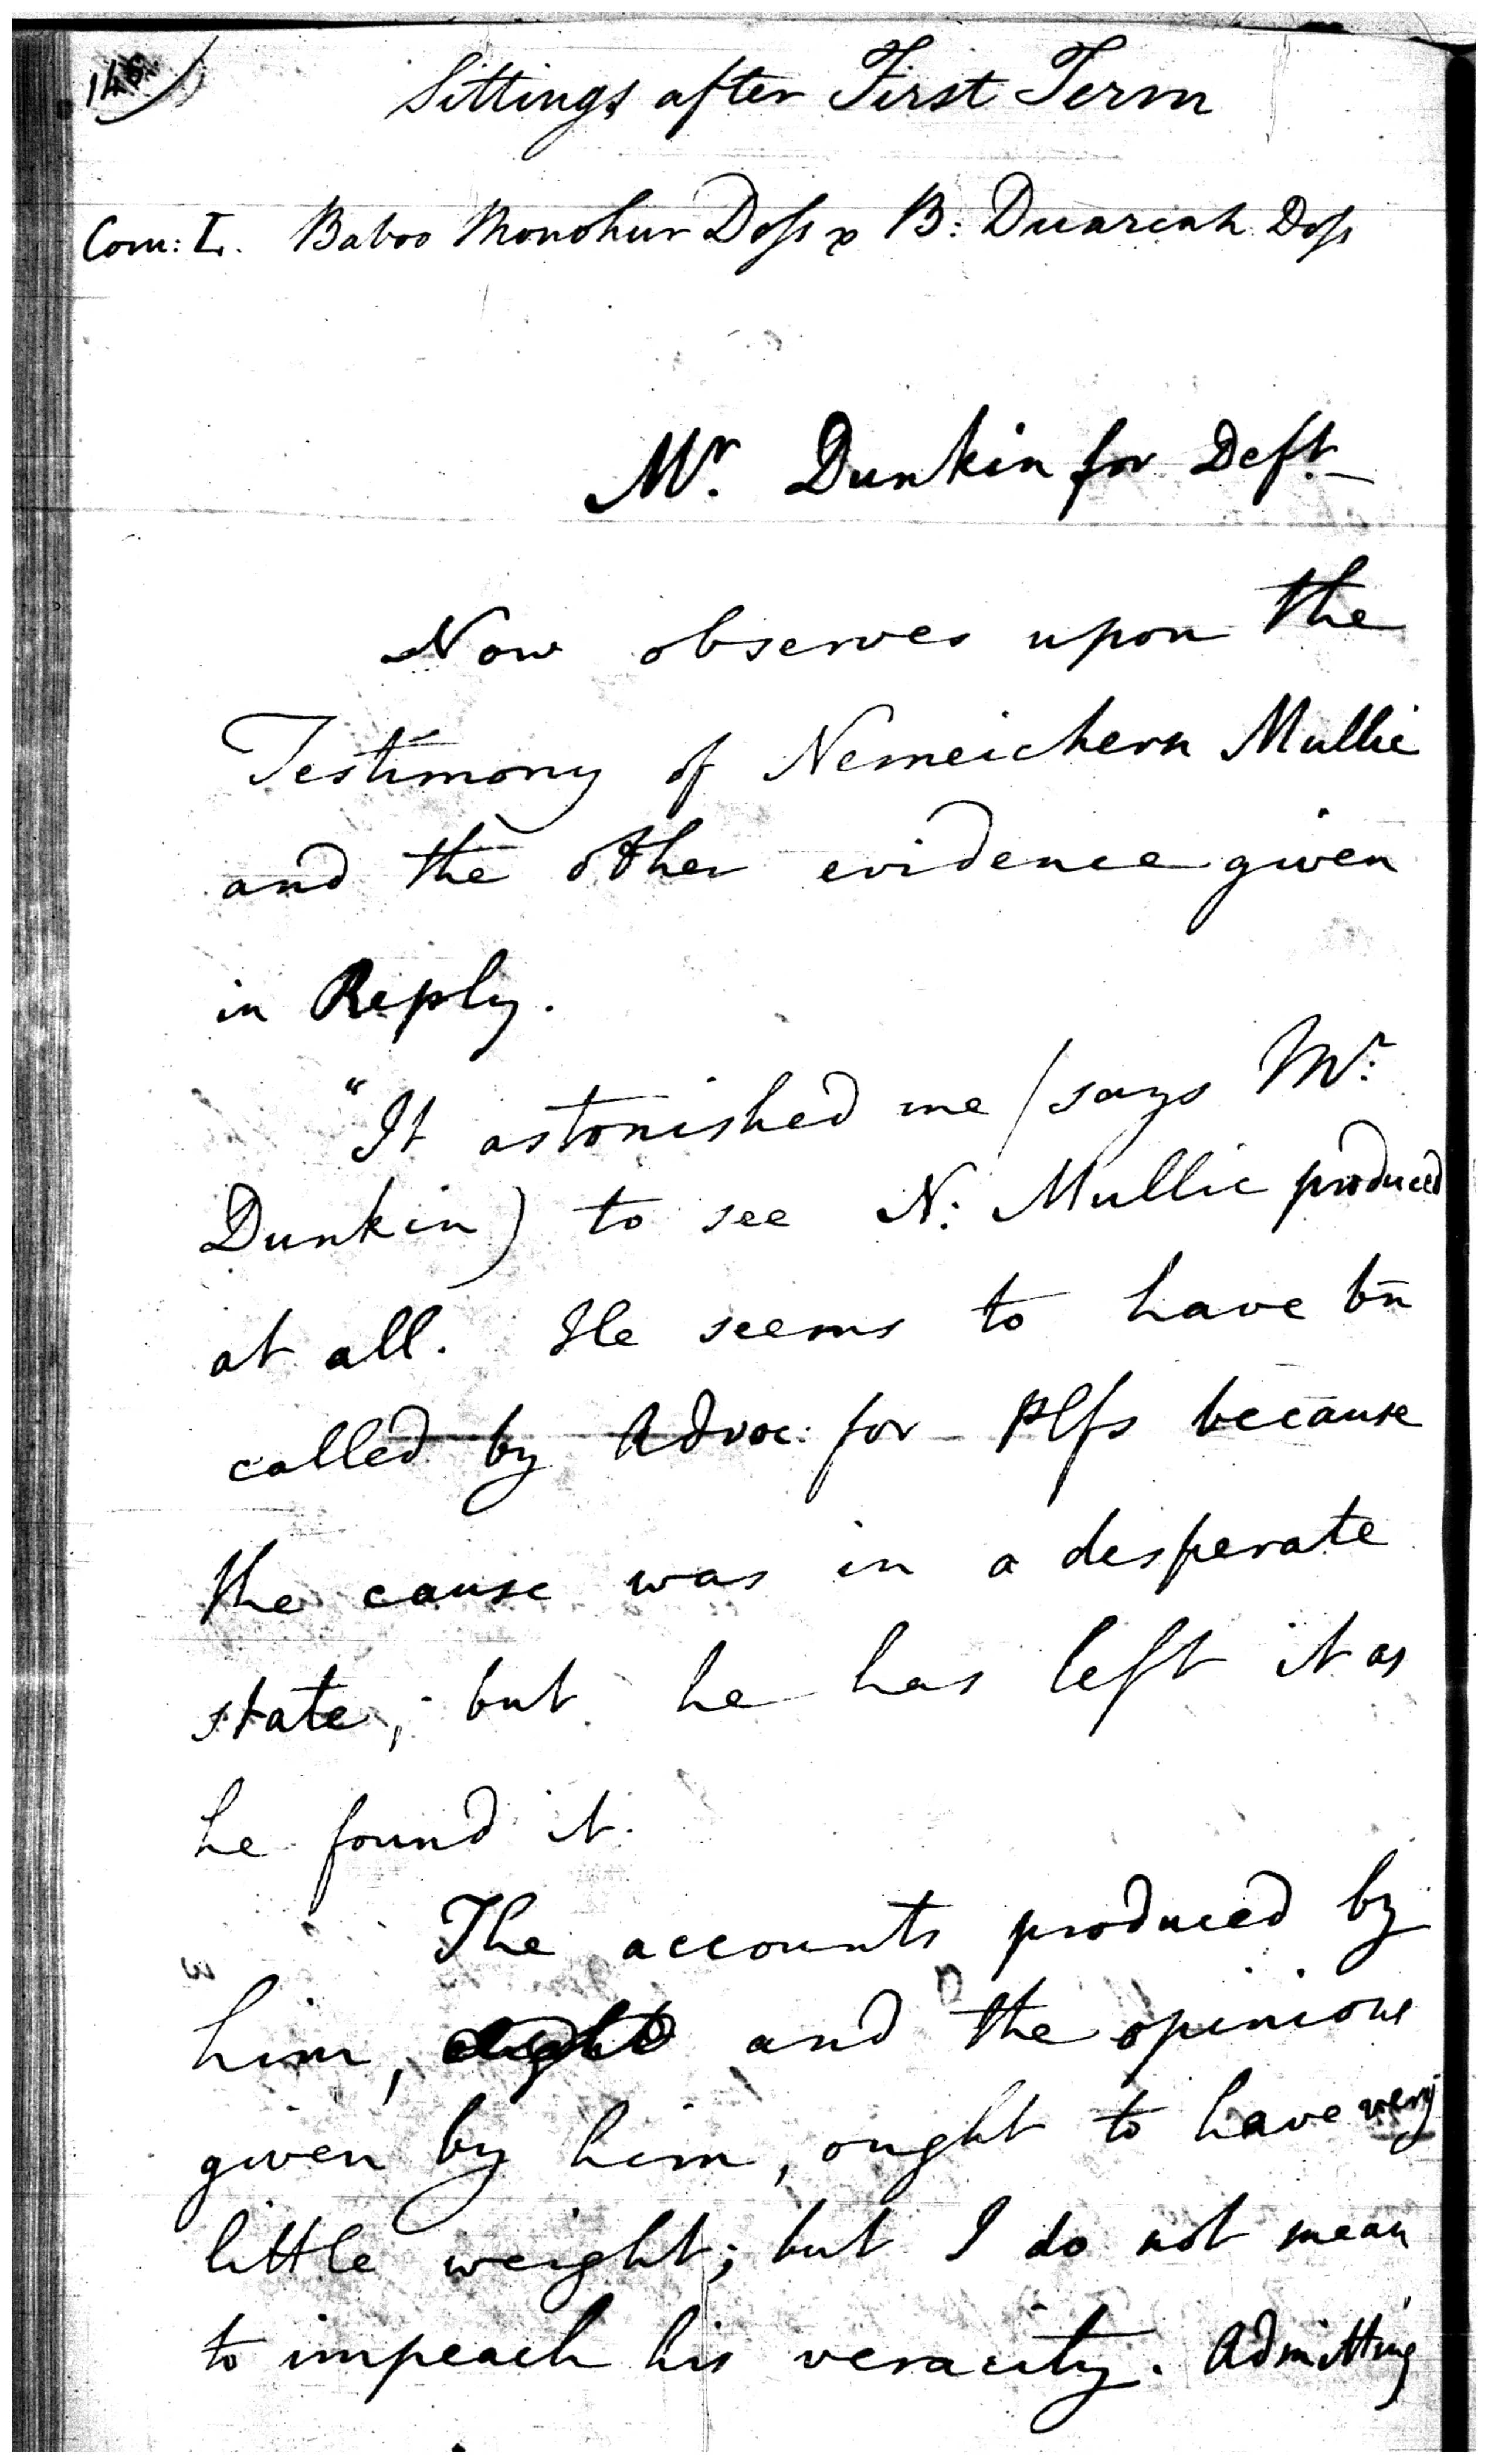 Sittings after First Term
Com: L. Baboo Monohur Doss x B: Duarcah Doss
Mr. Dunkin for Deft
Now observes upon the
Testimony of Nemeichern Mullic
and the other evidence given
in Reply.
"It astonished me (says Mr:
Dunkin) to see N: Mullic produced
at all. He seems to have bn
called by Advoc: for Plfs because
the cause was in a desperate
state; but he has left it as
he found it.
The accounts produced by
him, and the opinions
given by him, ought to have very
little weight; but I do not mean
to impeach his veracity. Admitting